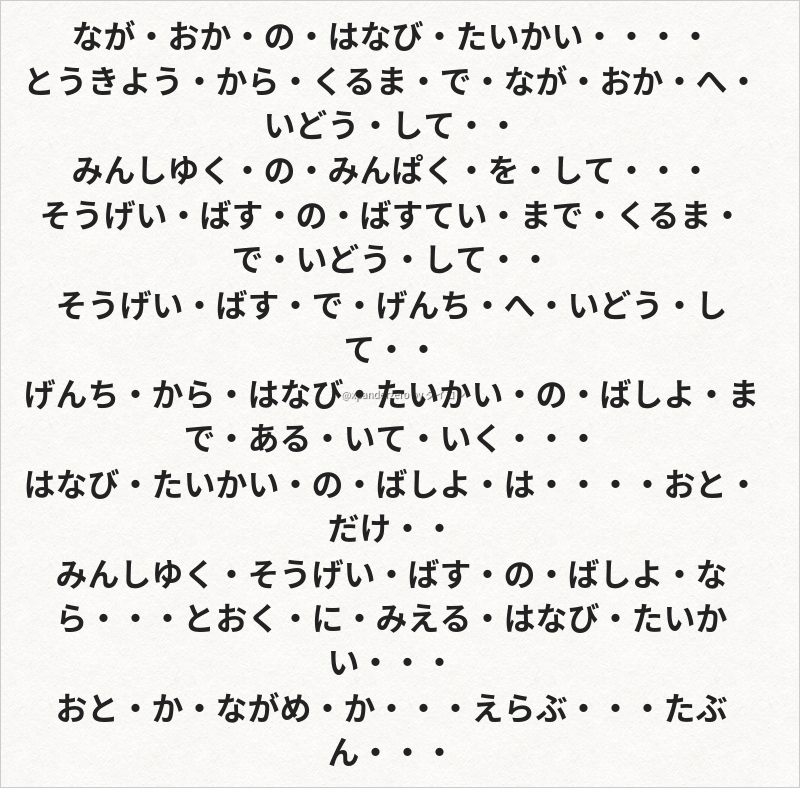 なが・おか・の・はなび・たいかい・・・・
とうきよう・から・くるま・で・なが・おか・へ・
いどう・して・・
みんしゆく・の・みんぱく・を・して・・・
そうげい・ばす・の・ばすてい・まで・くるま・
で・いどう・して・・
そうげい・ばす・で・げんち・へ・いどう・し
て・・
げんち・から・はなび・たいかい・の・ばしよ・ま
で・ある・いて・いく・・・
はなび・たいかい・の・ばしよ・は・・・・おと・
だけ・・
みんしゆく・そうげい・ばす・の・ばしよ・な
ら・・・とおく・に・みえる・はなび・たいか
い・・・
おと・か・ながめ・か・・・えらぶ・・・たぶ
ん・・・